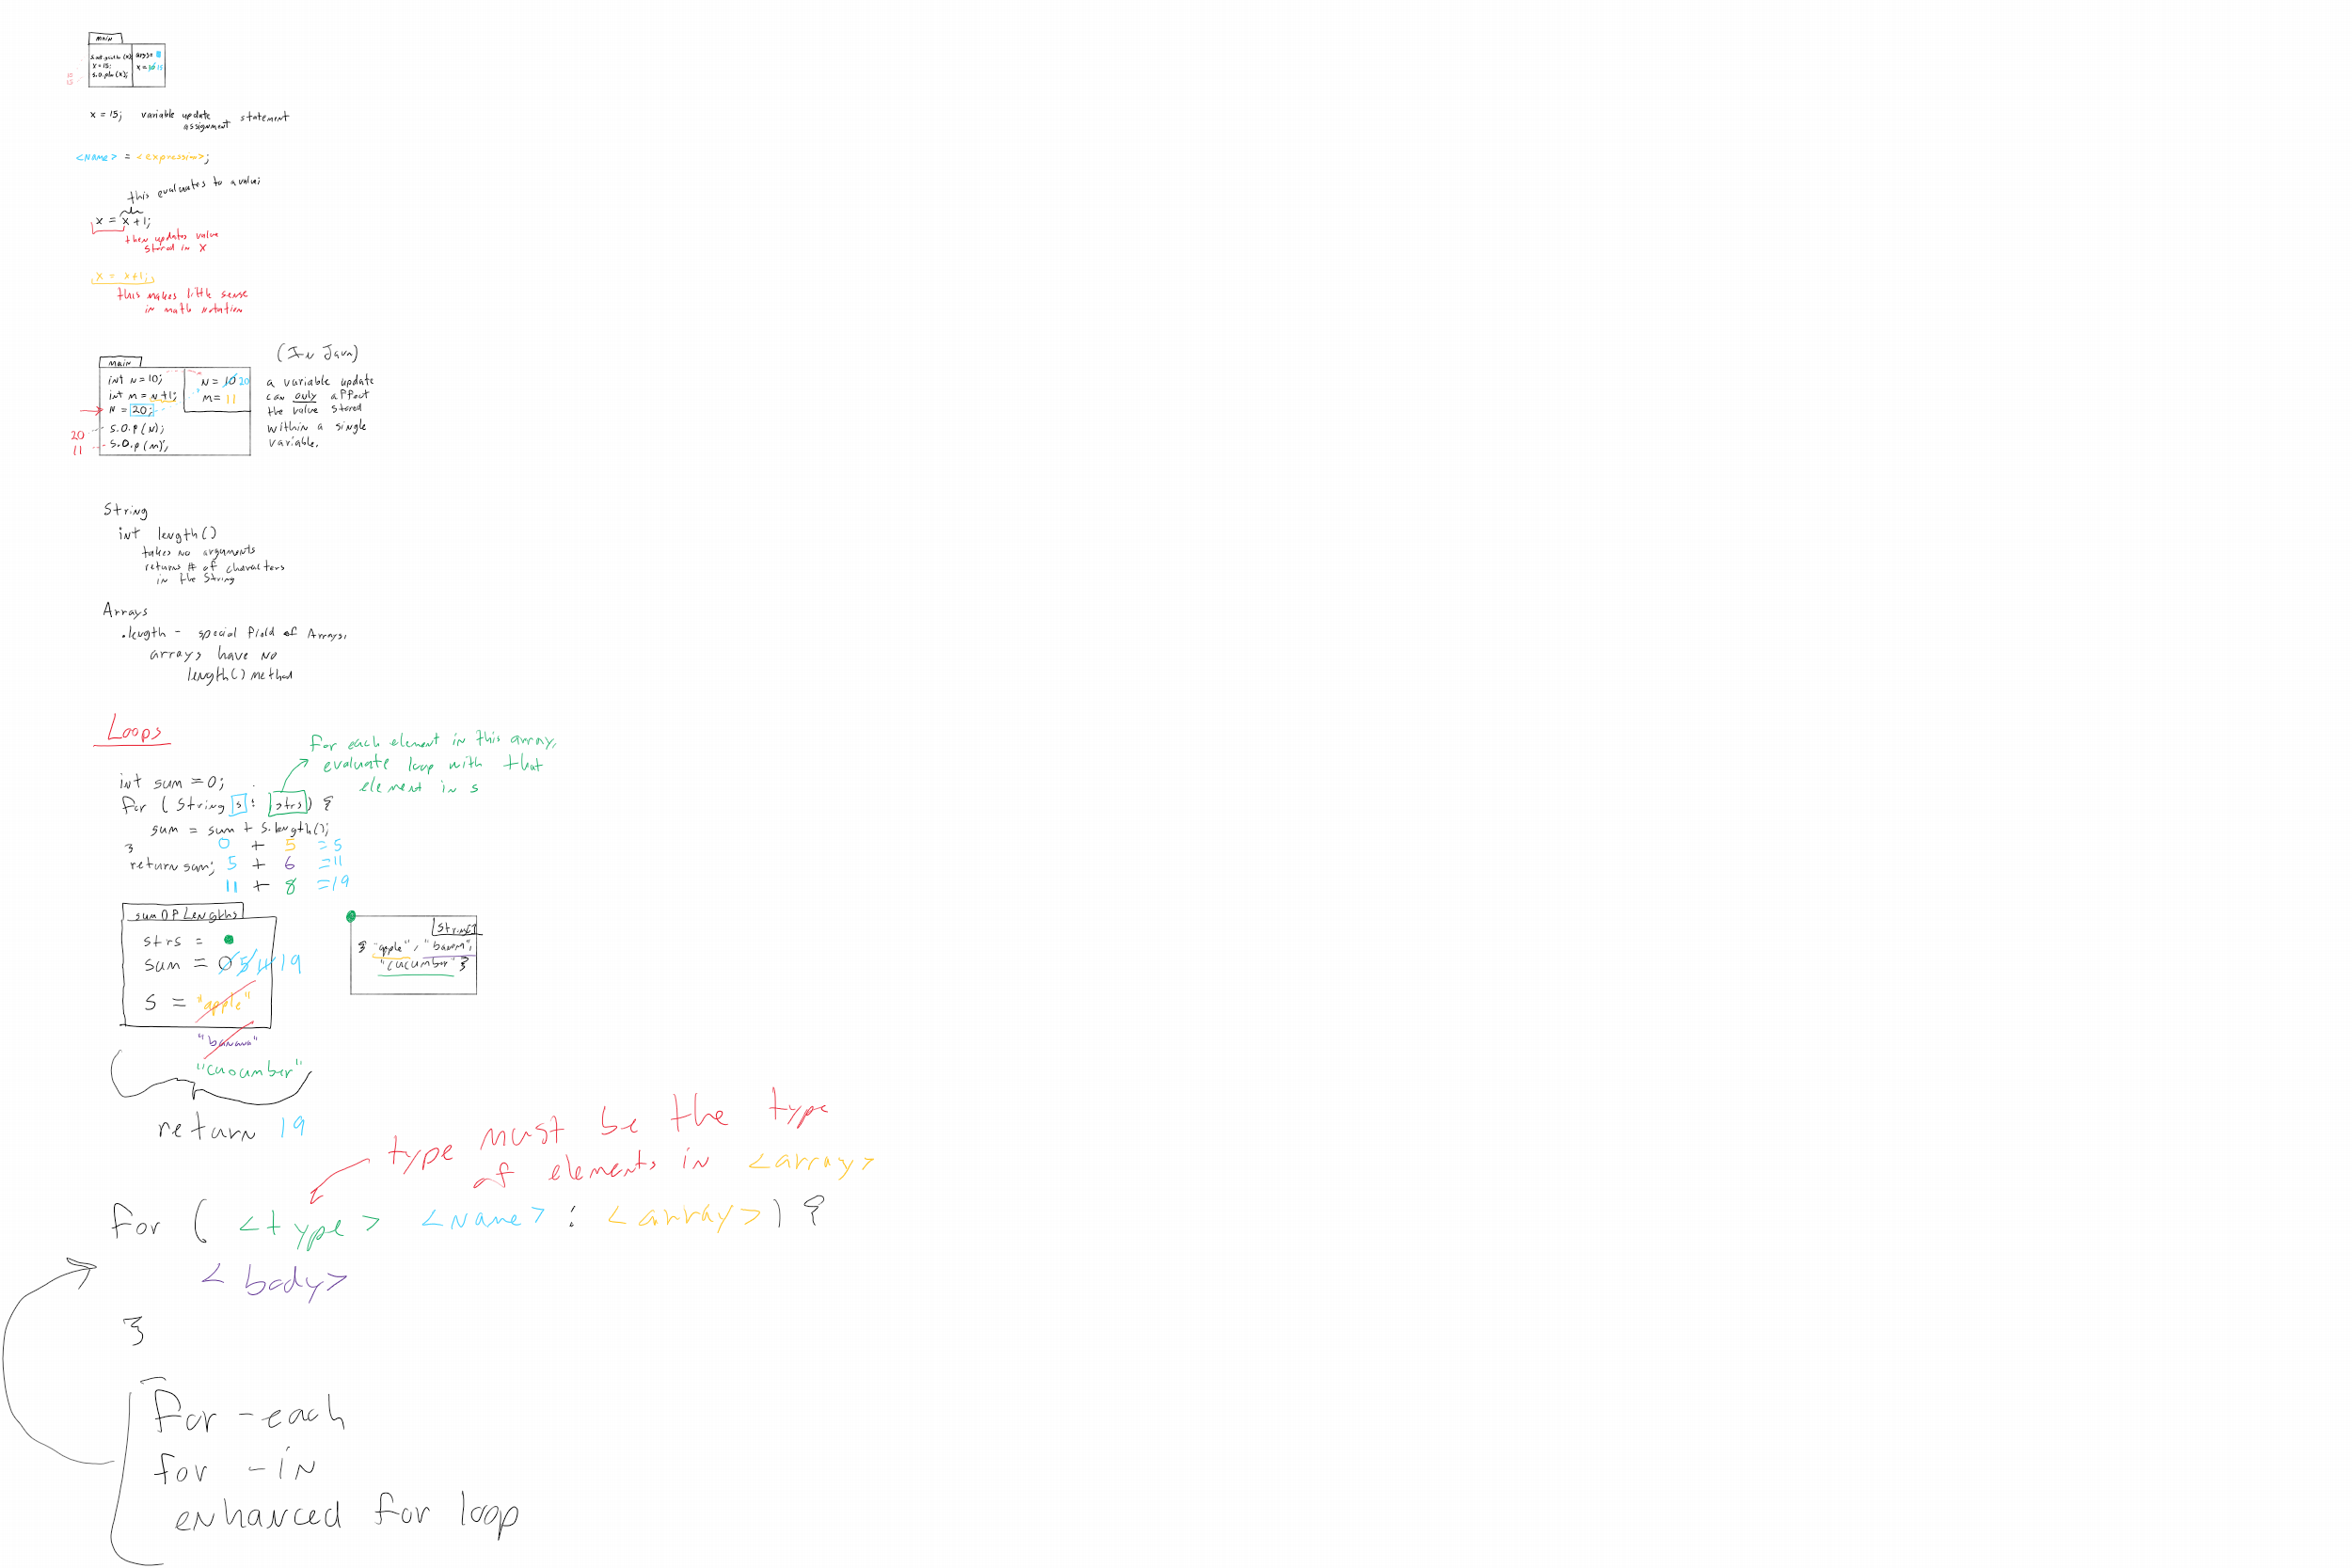 main
S.out.println(x) args=
x=15; x = 10 15
S.O.pln(x);
10
15
x = 15; variable update statement
assignment
<name> = <expression>;
this evaluates to a value;
x = x+1;
then updates value
stored in x
x = x+1;
this makes little sense
in math notation
(In Java)
main
int n = 10; n = 10 20 a variable update
int m = n+1; m = 11 can only affect
n = 20; the value stored
20 S.O.p(n); within a single
11 S.O.p(m); variable.
String
int length()
takes no arguments
returns # of characters
in the String
Arrays
.length - special field of Arrays,
arrays have no
length() method
Loops
for each element in this array,
evaluate loop with that
element in s
int sum = 0;
for (String s : strs) {
sum = sum + s.length();
} 0 + 5 =5
return sum; 5 + 6 =11
11 + 8 =19
sumOfLengths
strs =
sum = 0 5 11 19
s = "apple"
"banana"
"cucumber"
String[]
{ "apple", "banana",
"cucumber" }
return 19
type must be the type
of elements in <array>
for ( <type> <name> : <array>) {
<body>
}
for-each
for-in
enhanced for loop